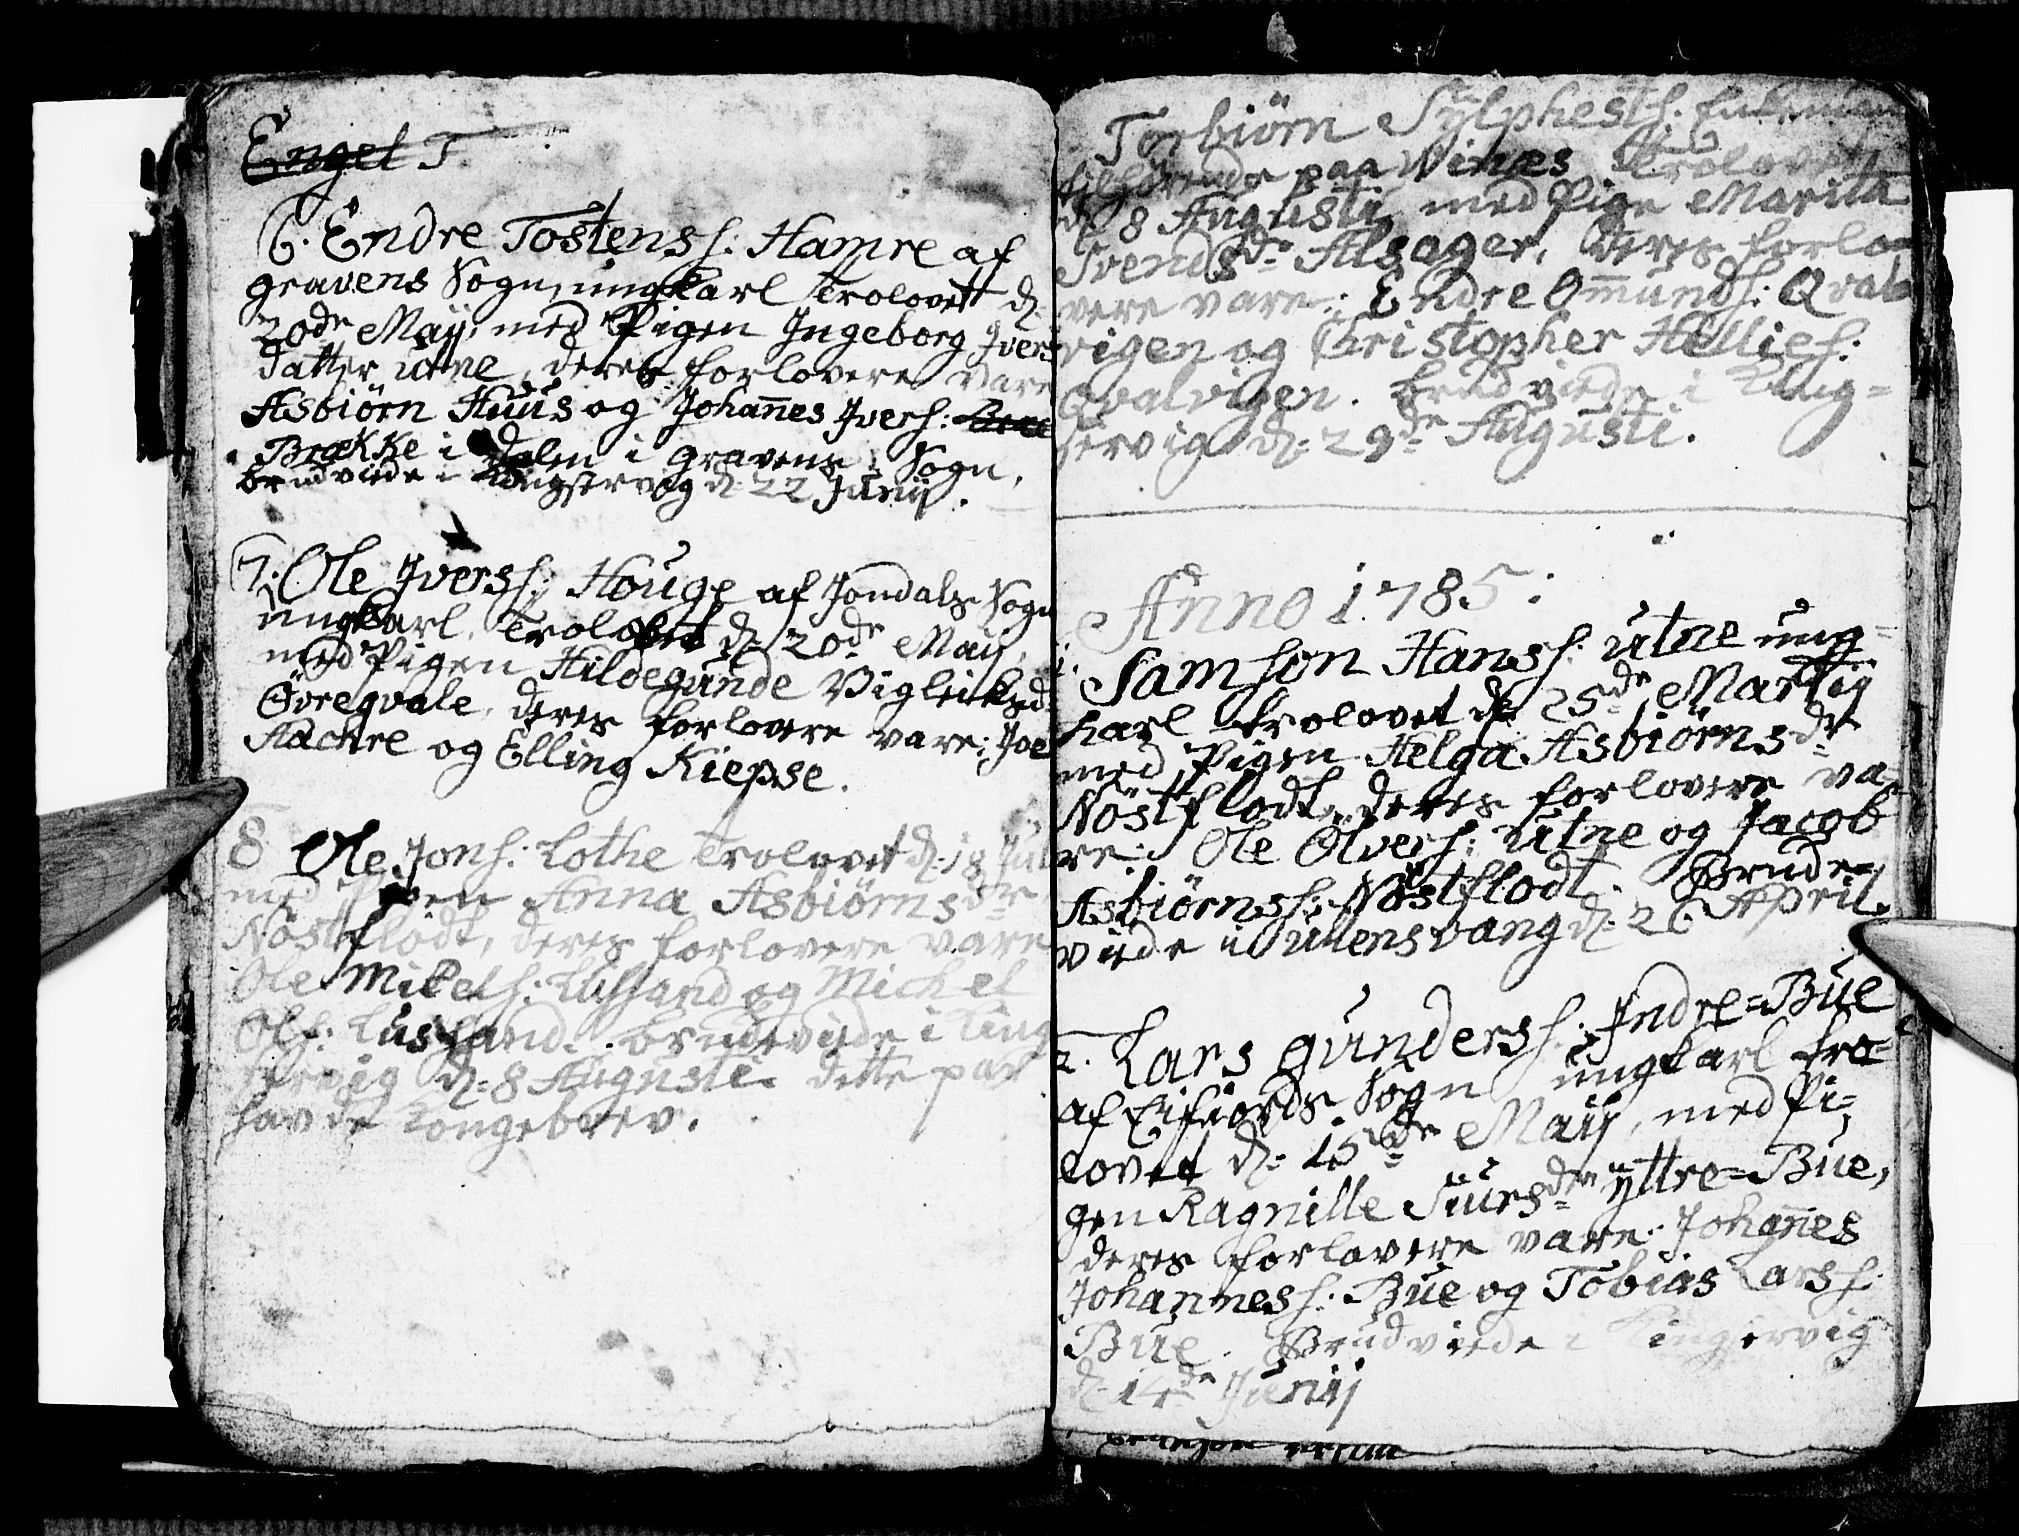 Engel T
6. Endre Tostenss: Hamre af
gravens Sogn, ungkarl Trolovet d:
20de Maij, med Pigen Ingeborg Ivers
datter utne, deres forlovere vare
Asbiörn Huus og Johanes Iverss:
Brække i Dalen i Gravens Sogn,
brudviede i Kingservig d: 22 Junij.
7. Ole Iverss: Houge af Jondals Sogn
ungkarl, Trolovet d: 20de Maij,
med Pigen Hildegunde Vigleiksd
Övreqvale, deres forlovere vare: Joe
Aachre og Elling Kiepse.
8 Ole Jons: Lothe Trolovet d: 18 Jul
med Pigen Anna Asbiörnsdtr
Nöstflodt, deres forlovere vare
Ole Mikels: Lussand og Michel
Ols: Lussand. brudeviede i King
servig d: 8 Augusti. dette par
havde Kongebrev.
Torbiörn Sylphests: Enkemand
paa Winæs Trolovet
d: 8 Augusti, med Pige Marita
Svendsdr Alsager, Deres forlo=
vere vare: Endre Omunds: Qval=
vigen og Christopher Hellies:
Qvalvigen. brudviede i King=
servig d: 29de Augusti.
Anno 1785:
1. Samson Hanss: utne ung=
karl trolovet d: 25de Martij
med Pigen Helga Asbiörnsdr
Nöstflodt, deres forlovere va=
re: Ole Olvers: utne og Jacob
Asbiörnss: Nöstflodt. Brude=
viede i Ullensvang d: 26 April.
2. Lars gunderss: Indre=Bue
af Eifiords Sogn ungkarl tro=
lovet d: 15de Maij, med Pi=
gen Ragnille Siursdtr yttre=Bue,
deres forlovere vare: Johanes
Johanness: Bue og Tobias Larss:
Bue. Brudviede i Kingservig
d: 14de Junij